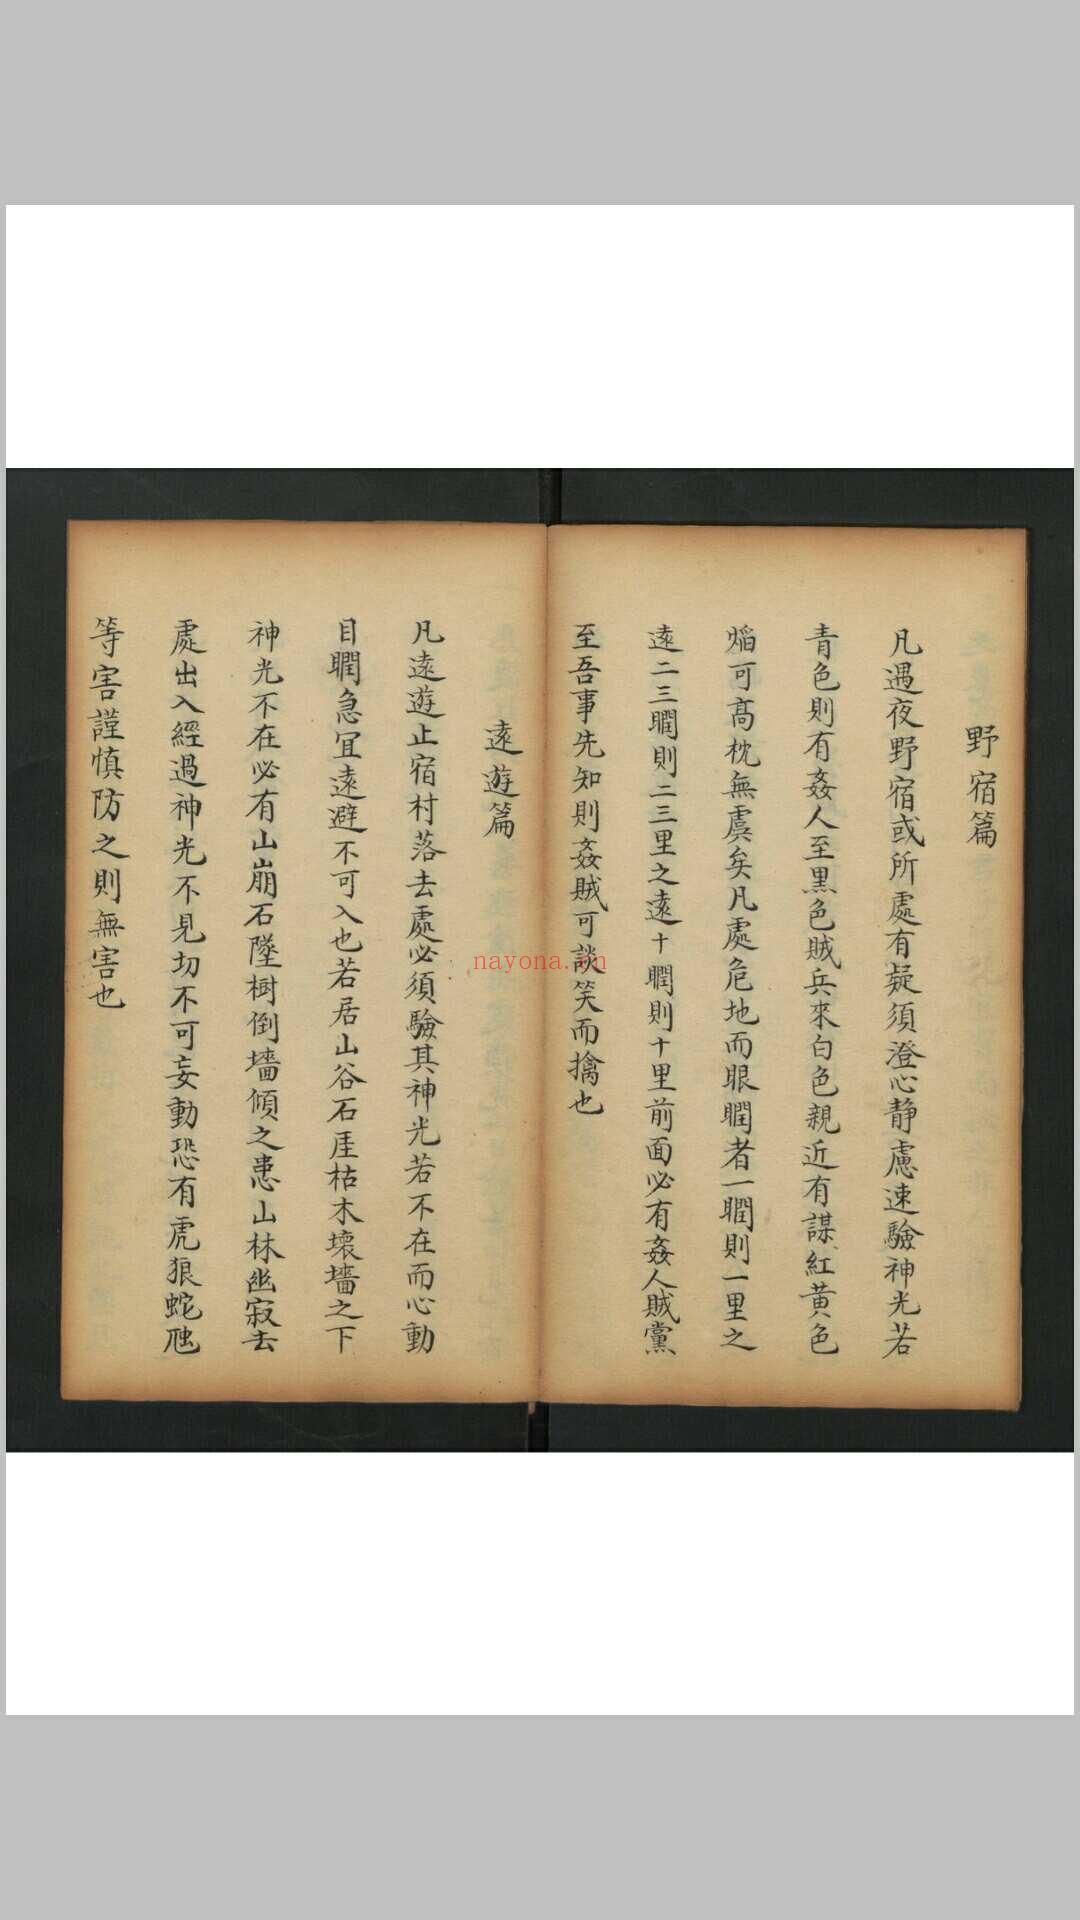 野宿篇
凡遇夜野宿或所處有疑須澄心靜慮速驗神光若
青色則有姦人至黑色賊兵來白色親近有謀紅黃色
焰可高枕無虞矣凡處危地而眼瞤者一瞤則一里之
遠二三瞤則二三里之遠十瞤則十里前面必有姦人賊黨
至吾事先知則姦賊可談笑而擒也
遠遊篇
凡遠遊止宿村落去處必須驗其神光若不在而心動
目瞤急宜遠避不可入也若居山谷石厓枯木壞墻之下
神光不在必有山崩石墜樹倒墻傾之患山林幽寂去
處出入經過神光不見切不可妄動恐有虎狼蛇虺
等害謹慎防之則無害也
nayona.cn